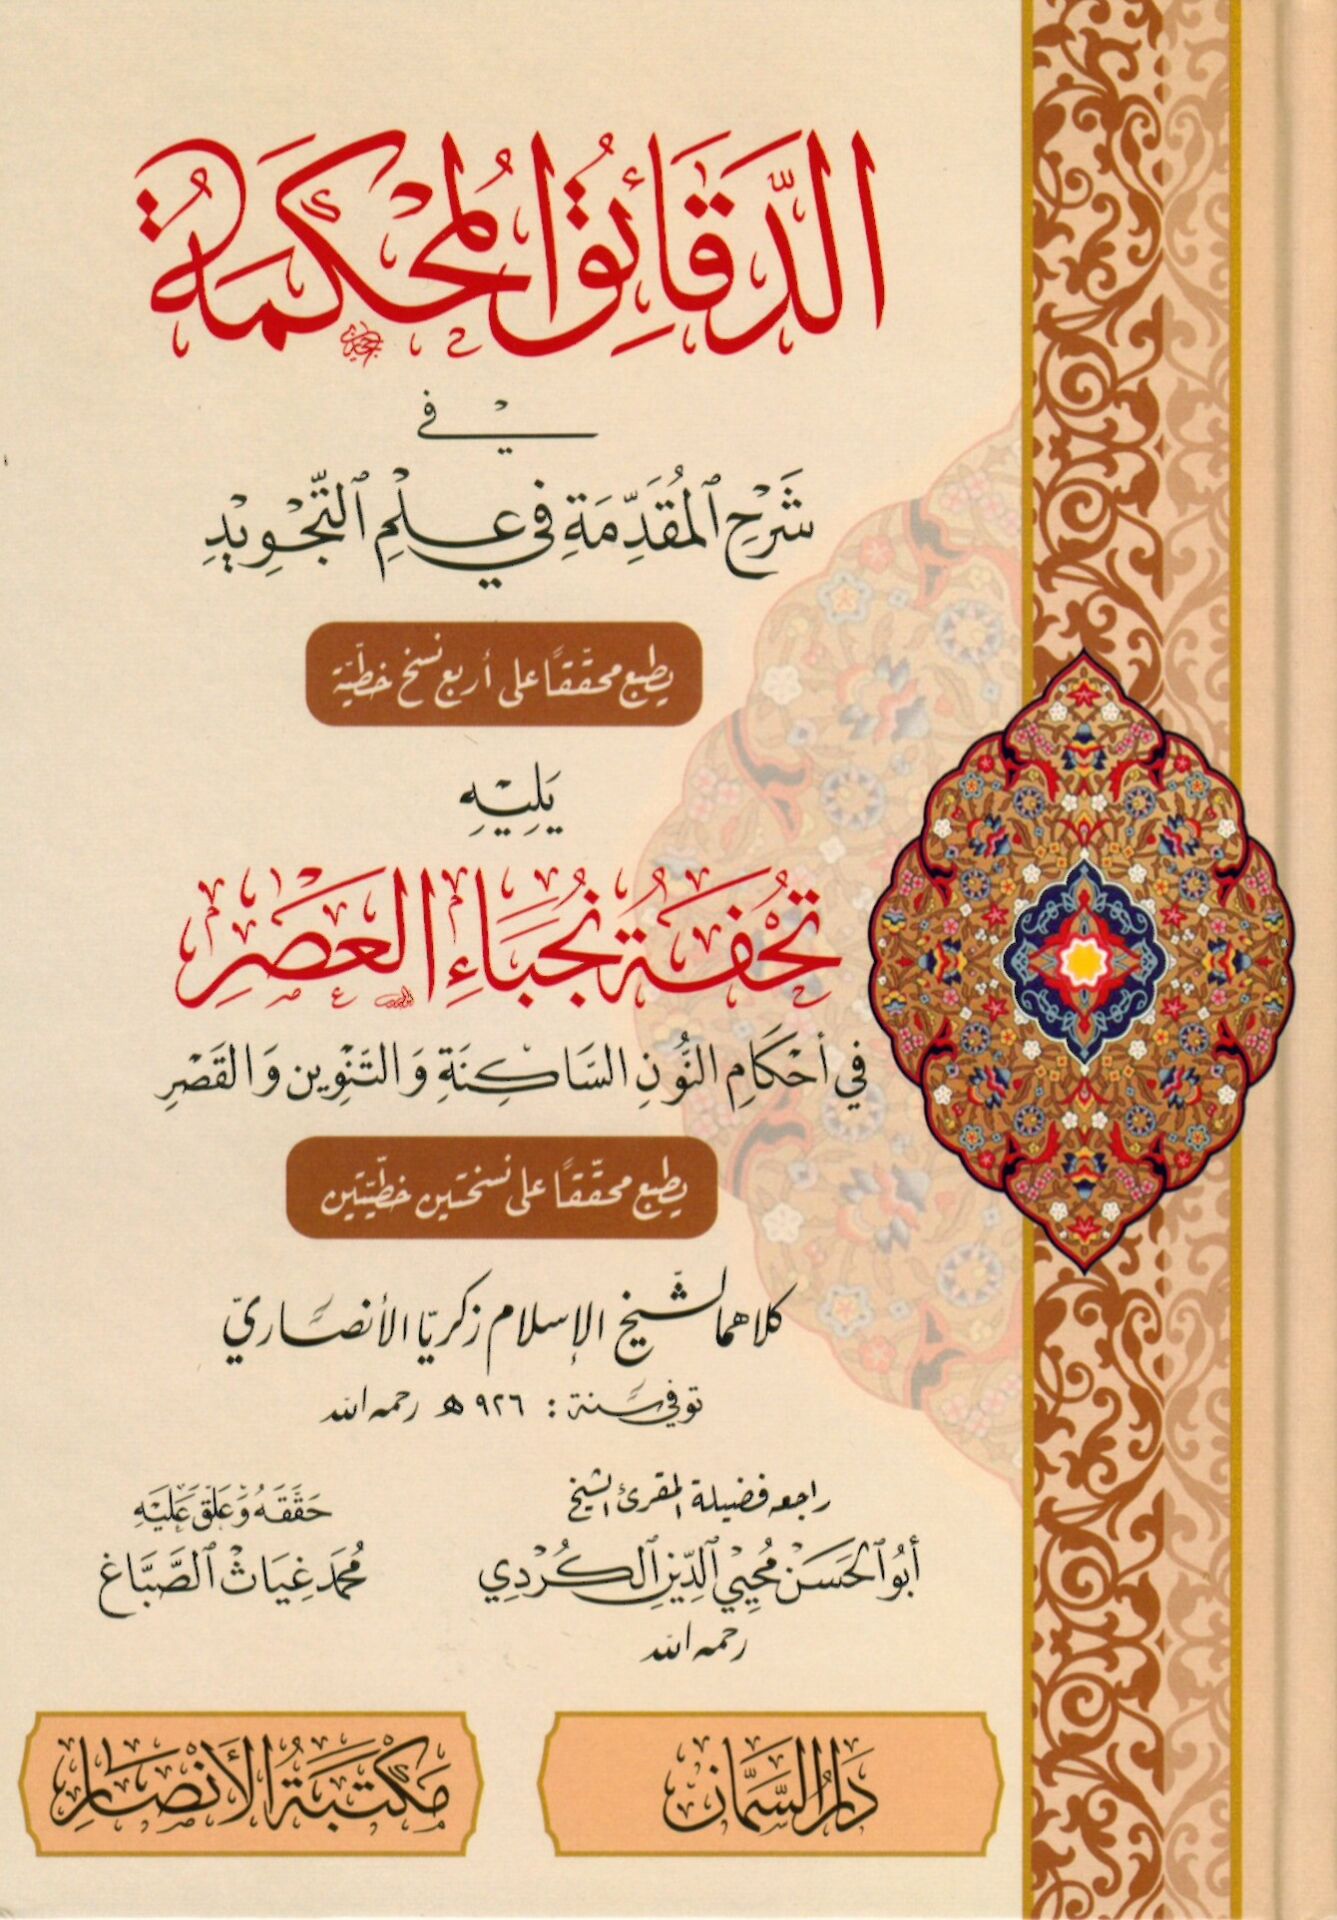 الدَّقَائِقُ المُحْكَمَةُ
في
شَرْحِ المُقَدِّمَةِ فِي عِلْمِ التَّجْوِيدِ
يطبع محقّقًا على أربع نسخ خطّيّة
يَلِيْهِ
تُحْفَةُ نُجَبَاءِ العَصْرِ
فِي أَحْكَامِ النُّونِ السَّاكِنَةِ وَالتَّنْوِينِ وَالقَصْرِ
يطبع محقّقًا على نسختين خطّيّتين
كلاهما لشيخ الإسلام زكريّا الأنصاريّ
توفي سنة : ٩٢٦ هـ رحمه الله
راجعه فضيلة المقرئ الشيخ
أَبُو الحَسَنْ مُحْيِي الدِّينِ الكُرْدِي
رحمه الله
حَقَّقَهُ وَعَلَّقَ عَلَيْهِ
مُحَمَّد غِيَاثْ الصَّبَّاغ
دَارُ السَّمَّان
مَكْتَبَةُ الأَنْصَارِ